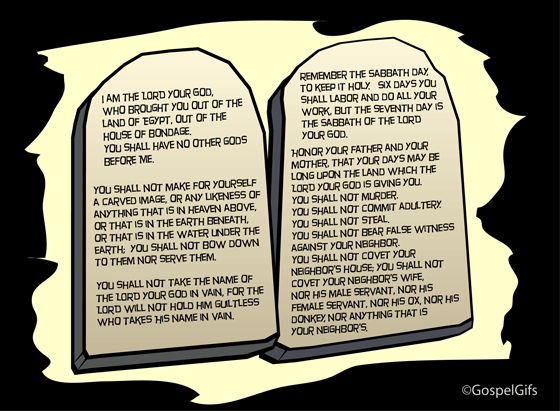 I AM THE LORD YOUR GOD,
WHO BROUGHT YOU OUT OF THE
LAND OF EGYPT, OUT OF THE
HOUSE OF BONDAGE.
YOU SHALL HAVE NO OTHER GODS
BEFORE ME.
YOU SHALL NOT MAKE FOR YOURSELF
A CARVED IMAGE, OR ANY LIKENESS OF
ANYTHING THAT IS IN HEAVEN ABOVE,
OR THAT IS IN THE EARTH BENEATH,
OR THAT IS IN THE WATER UNDER THE
EARTH; YOU SHALL NOT BOW DOWN
TO THEM NOR SERVE THEM.
YOU SHALL NOT TAKE THE NAME OF
THE LORD YOUR GOD IN VAIN, FOR THE
LORD WILL NOT HOLD HIM GUILTLESS
WHO TAKES HIS NAME IN VAIN.
REMEMBER THE SABBATH DAY,
TO KEEP IT HOLY. SIX DAYS YOU
SHALL LABOR AND DO ALL YOUR
WORK, BUT THE SEVENTH DAY IS
THE SABBATH OF THE LORD
YOUR GOD.
HONOR YOUR FATHER AND YOUR
MOTHER, THAT YOUR DAYS MAY BE
LONG UPON THE LAND WHICH THE
LORD YOUR GOD IS GIVING YOU.
YOU SHALL NOT MURDER.
YOU SHALL NOT COMMIT ADULTERY.
YOU SHALL NOT STEAL.
YOU SHALL NOT BEAR FALSE WITNESS
AGAINST YOUR NEIGHBOR.
YOU SHALL NOT COVET YOUR
NEIGHBOR'S HOUSE; YOU SHALL NOT
COVET YOUR NEIGHBOR'S WIFE,
NOR HIS MALE SERVANT, NOR HIS
FEMALE SERVANT, NOR HIS OX, NOR HIS
DONKEY, NOR ANYTHING THAT IS
YOUR NEIGHBOR'S.
©GospelGifs